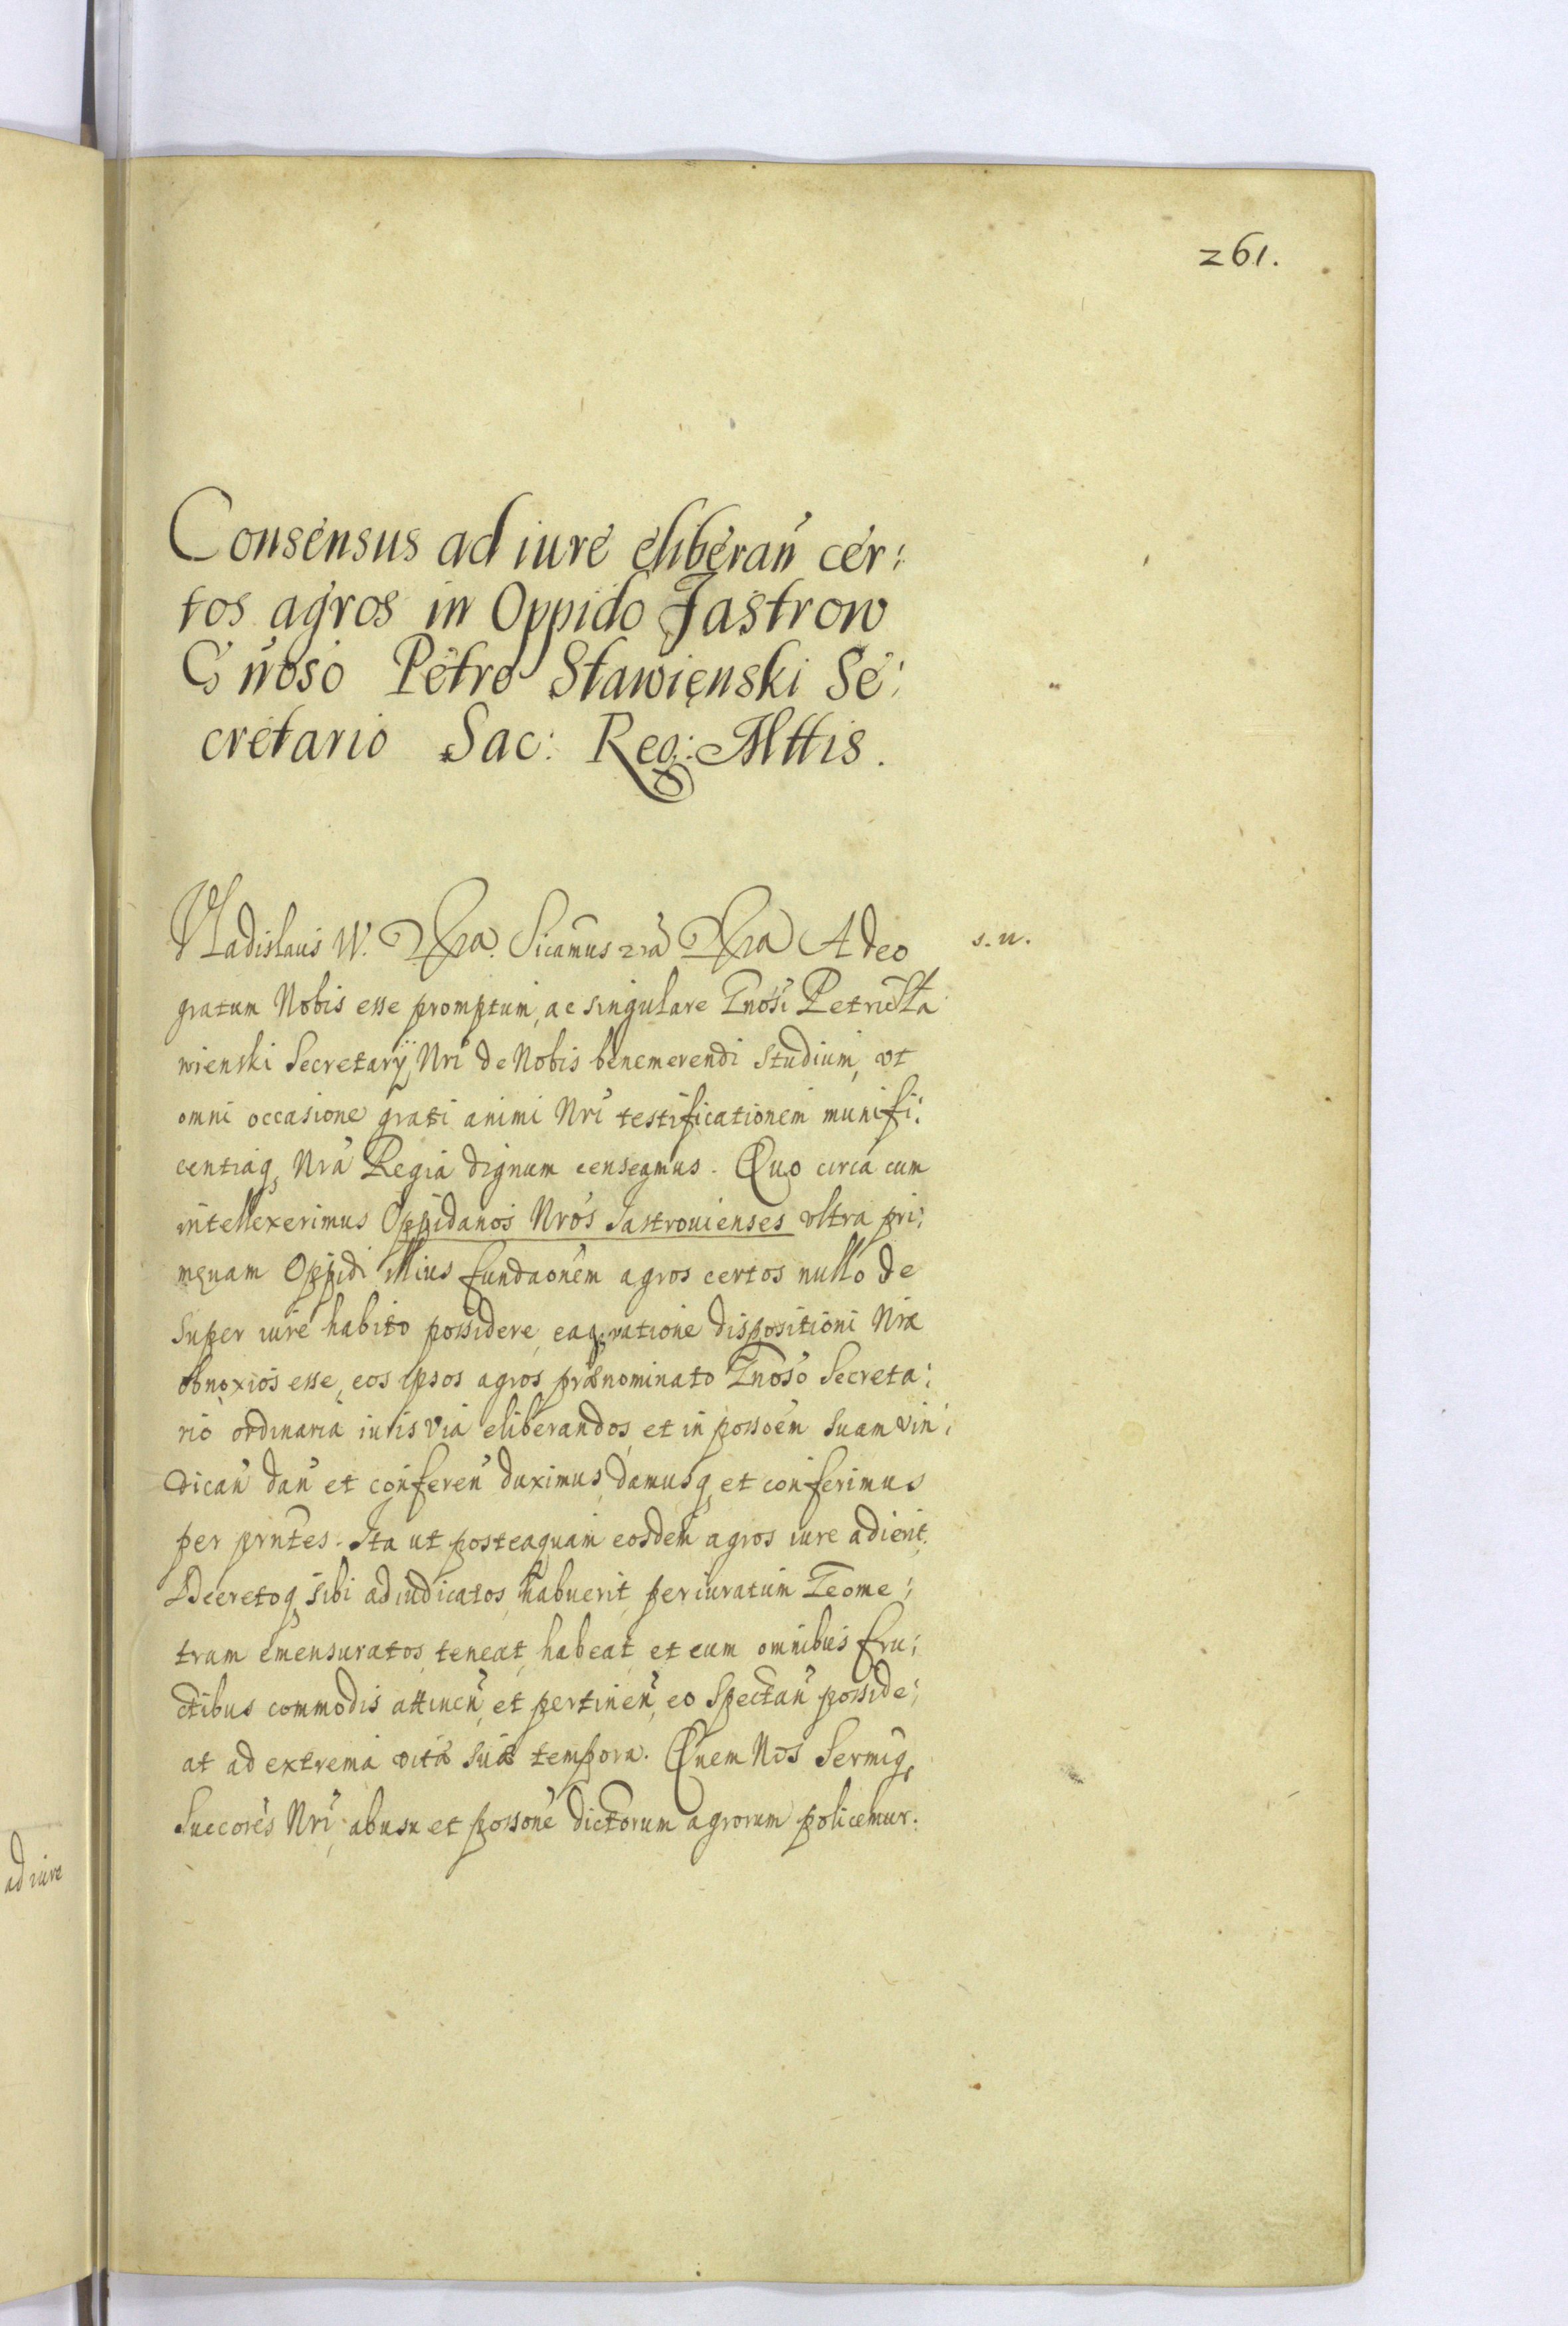 261.
Consensus ad iure eliberan̄ cer:
tos agros in Oppido Jastrow
Gnoso Petro Stawięnski Se:
cretario Sac: Reg: Mttis.
Vladislaus IV. Sicamus Adeo s. n.
gratum Nobis esse promptum, ac singulare Gnosi Petri Sta
wienski Secretarÿ Nri de Nobis benemerendi studium, vt
omni occasione grati animi Nri testificationem munifi:
centiaq, Nrá Regiá dignum censeamus. Quo circa cum
intellexerimus Oppidanos Nros Jastrouienses vltra pri:
mæuam Oppidi illius fundaonem agros certos nullo de
super iure habito possidere, eaq, ratione dispositioni Nræ
obnoxios esse, eos ipsos agros prænominato Gnoso Secreta:
rio ordinaria iuris via eliberandos, et in possoem suam vin:
dican̄ dan̄ et conferen̄ duximus, damusq, et conferimus
per prntes. Ita ut posteaquam eosdem agros iure adierit,
Decretoq, sibi adiudicatos, habuerit, per iuratum Geome:
tram emensuratos, teneat, habeat, et cum omnibus fru:
ctibus commodis attinen̄, et pertinen̄, eo spectan̄ posside:
at ad extrema vitæ suæ tempora. Quem Nos Sermiq,
Succores Nri, ab usu et possone dictorum agrorum policemur.
ad iure